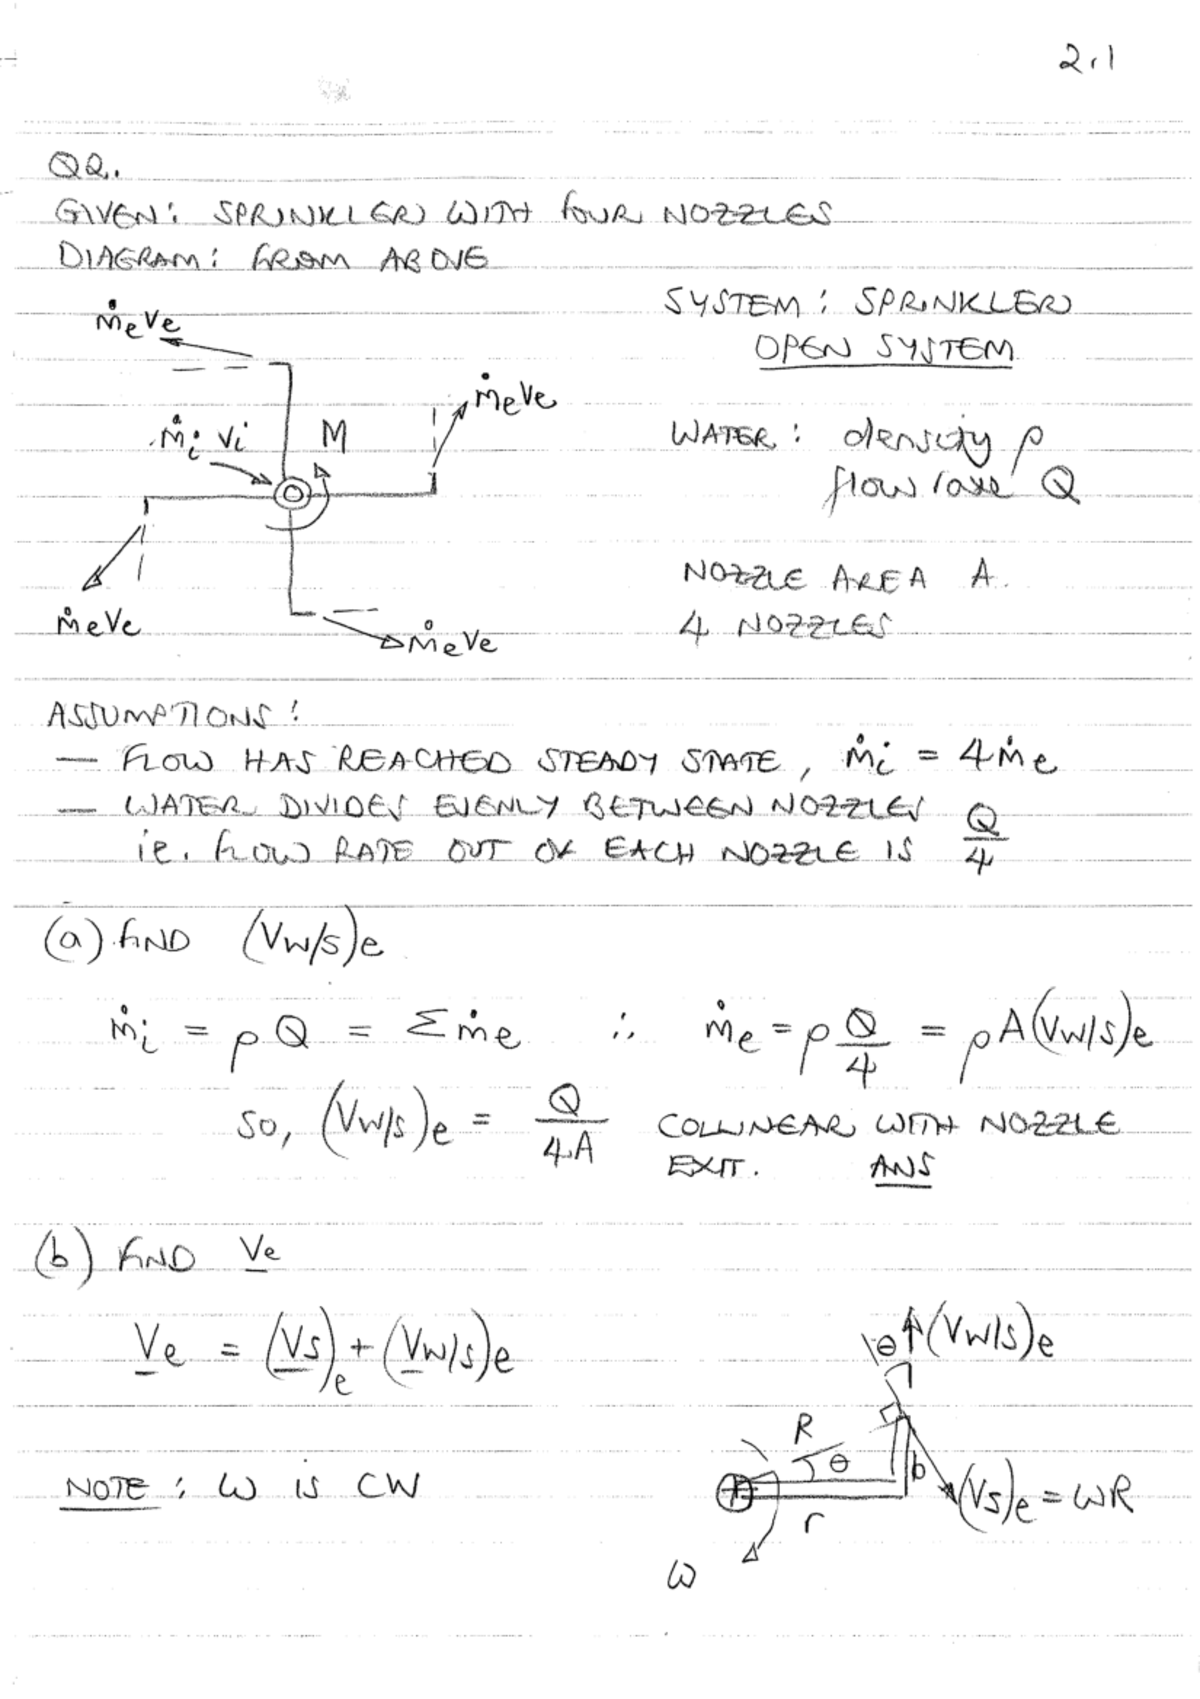 2.1
Q2.
GIVEN: SPRINKLER WITH FOUR NOZZLES
DIAGRAM: FROM ABOVE
ṁeVe
SYSTEM: SPRINKLER
OPEN SYSTEM
ṁeVe
ṁi Vi
M
WATER: density ρ
flow rate Q
NOZZLE AREA A.
4 NOZZLES
ṁeVe
ṁeVe
ASSUMPTIONS:
— FLOW HAS REACHED STEADY STATE, ṁi = 4ṁe
— WATER DIVIDES EVENLY BETWEEN NOZZLES
ie. FLOW RATE OUT OF EACH NOZZLE IS Q/4
(a) FIND (VW/S)e
ṁi = ρQ = Σṁe ∴ ṁe = ρQ/4 = ρA(VW/S)e
SO, (VW/S)e = Q/4A COLLINEAR WITH NOZZLE
EXIT. ANS
(b) FIND Ve
Ve = (VS)e + (VW/S)e
θ (VW/S)e
R
θ
b
NOTE: ω is CW
(VS)e = ωR
r
ω